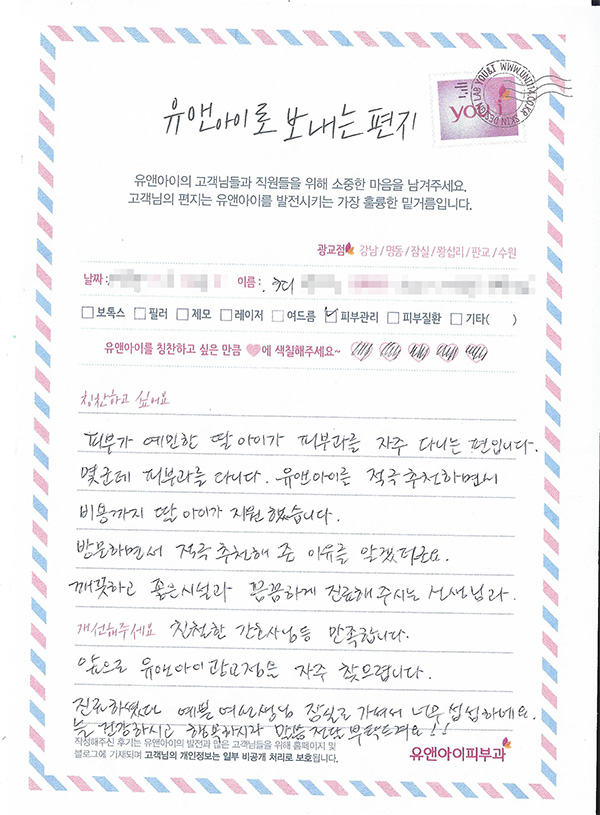 유앤아이로 보내는 편지
you&i
SKIN DESIGN LAB YOU&I WWW.UNI114.CO.KR
유앤아이의 고객님들과 직원들을 위해 소중한 마음을 남겨주세요.
고객님의 편지는 유앤아이를 발전시키는 가장 훌륭한 밑거름입니다.
광교점 강남/명동/잠실/왕십리/판교/수원
날짜: 이름:
보톡스 필러 제모 레이저 여드름 피부관리 피부질환 기타( )
유앤아이를 칭찬하고 싶은 만큼 에 색칠해주세요~
칭찬하고 싶어요
피부가 예민한 딸아이가 피부과를 자주 다니는 편입니다.
몇군데 피부과를 다니다. 유앤아이를 적극 추천하면서
비용까지 딸아이가 지원했습니다.
방문하면서 적극 추천해 준 이유를 알겠더군요.
깨끗하고 좋은시설과 꼼꼼하게 진료해 주시는 선생님과.
개선해주세요 친절한 간호사님등 만족합니다.
앞으로 유앤아이 광교점을 자주 찾으렵니다.
진료하셨다 예쁜 여선생님 잠실로 가셔서 너무 섭섭하네요.
늘 건강하시고 행복하시라 말씀 전달 부탁드려요!!
작성해주신 후기는 유앤아이의 발전과 많은 고객님들을 위해 홈페이지 및
블로그에 기재되며 고객님의 개인정보는 일부 비공개 처리로 보호됩니다.
유앤아이피부과